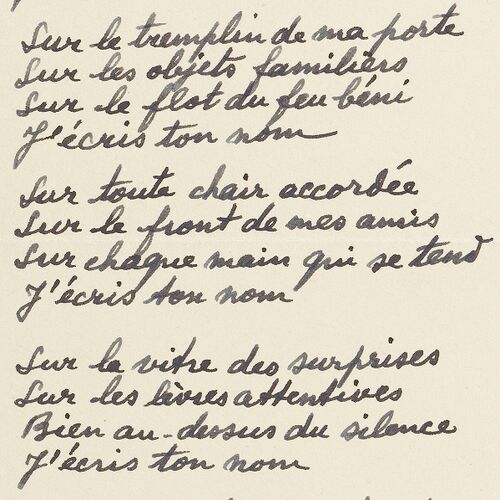 Sur le tremplin de ma porte
Sur les objets familiers
Sur le flot du feu béni
J'écris ton nom
Sur toute chair accordée
Sur le front de mes amis
Sur chaque main qui se tend
J'écris ton nom
Sur la vitre des surprises
Sur les lèvres attentives
Bien au-dessus du silence
J'écris ton nom